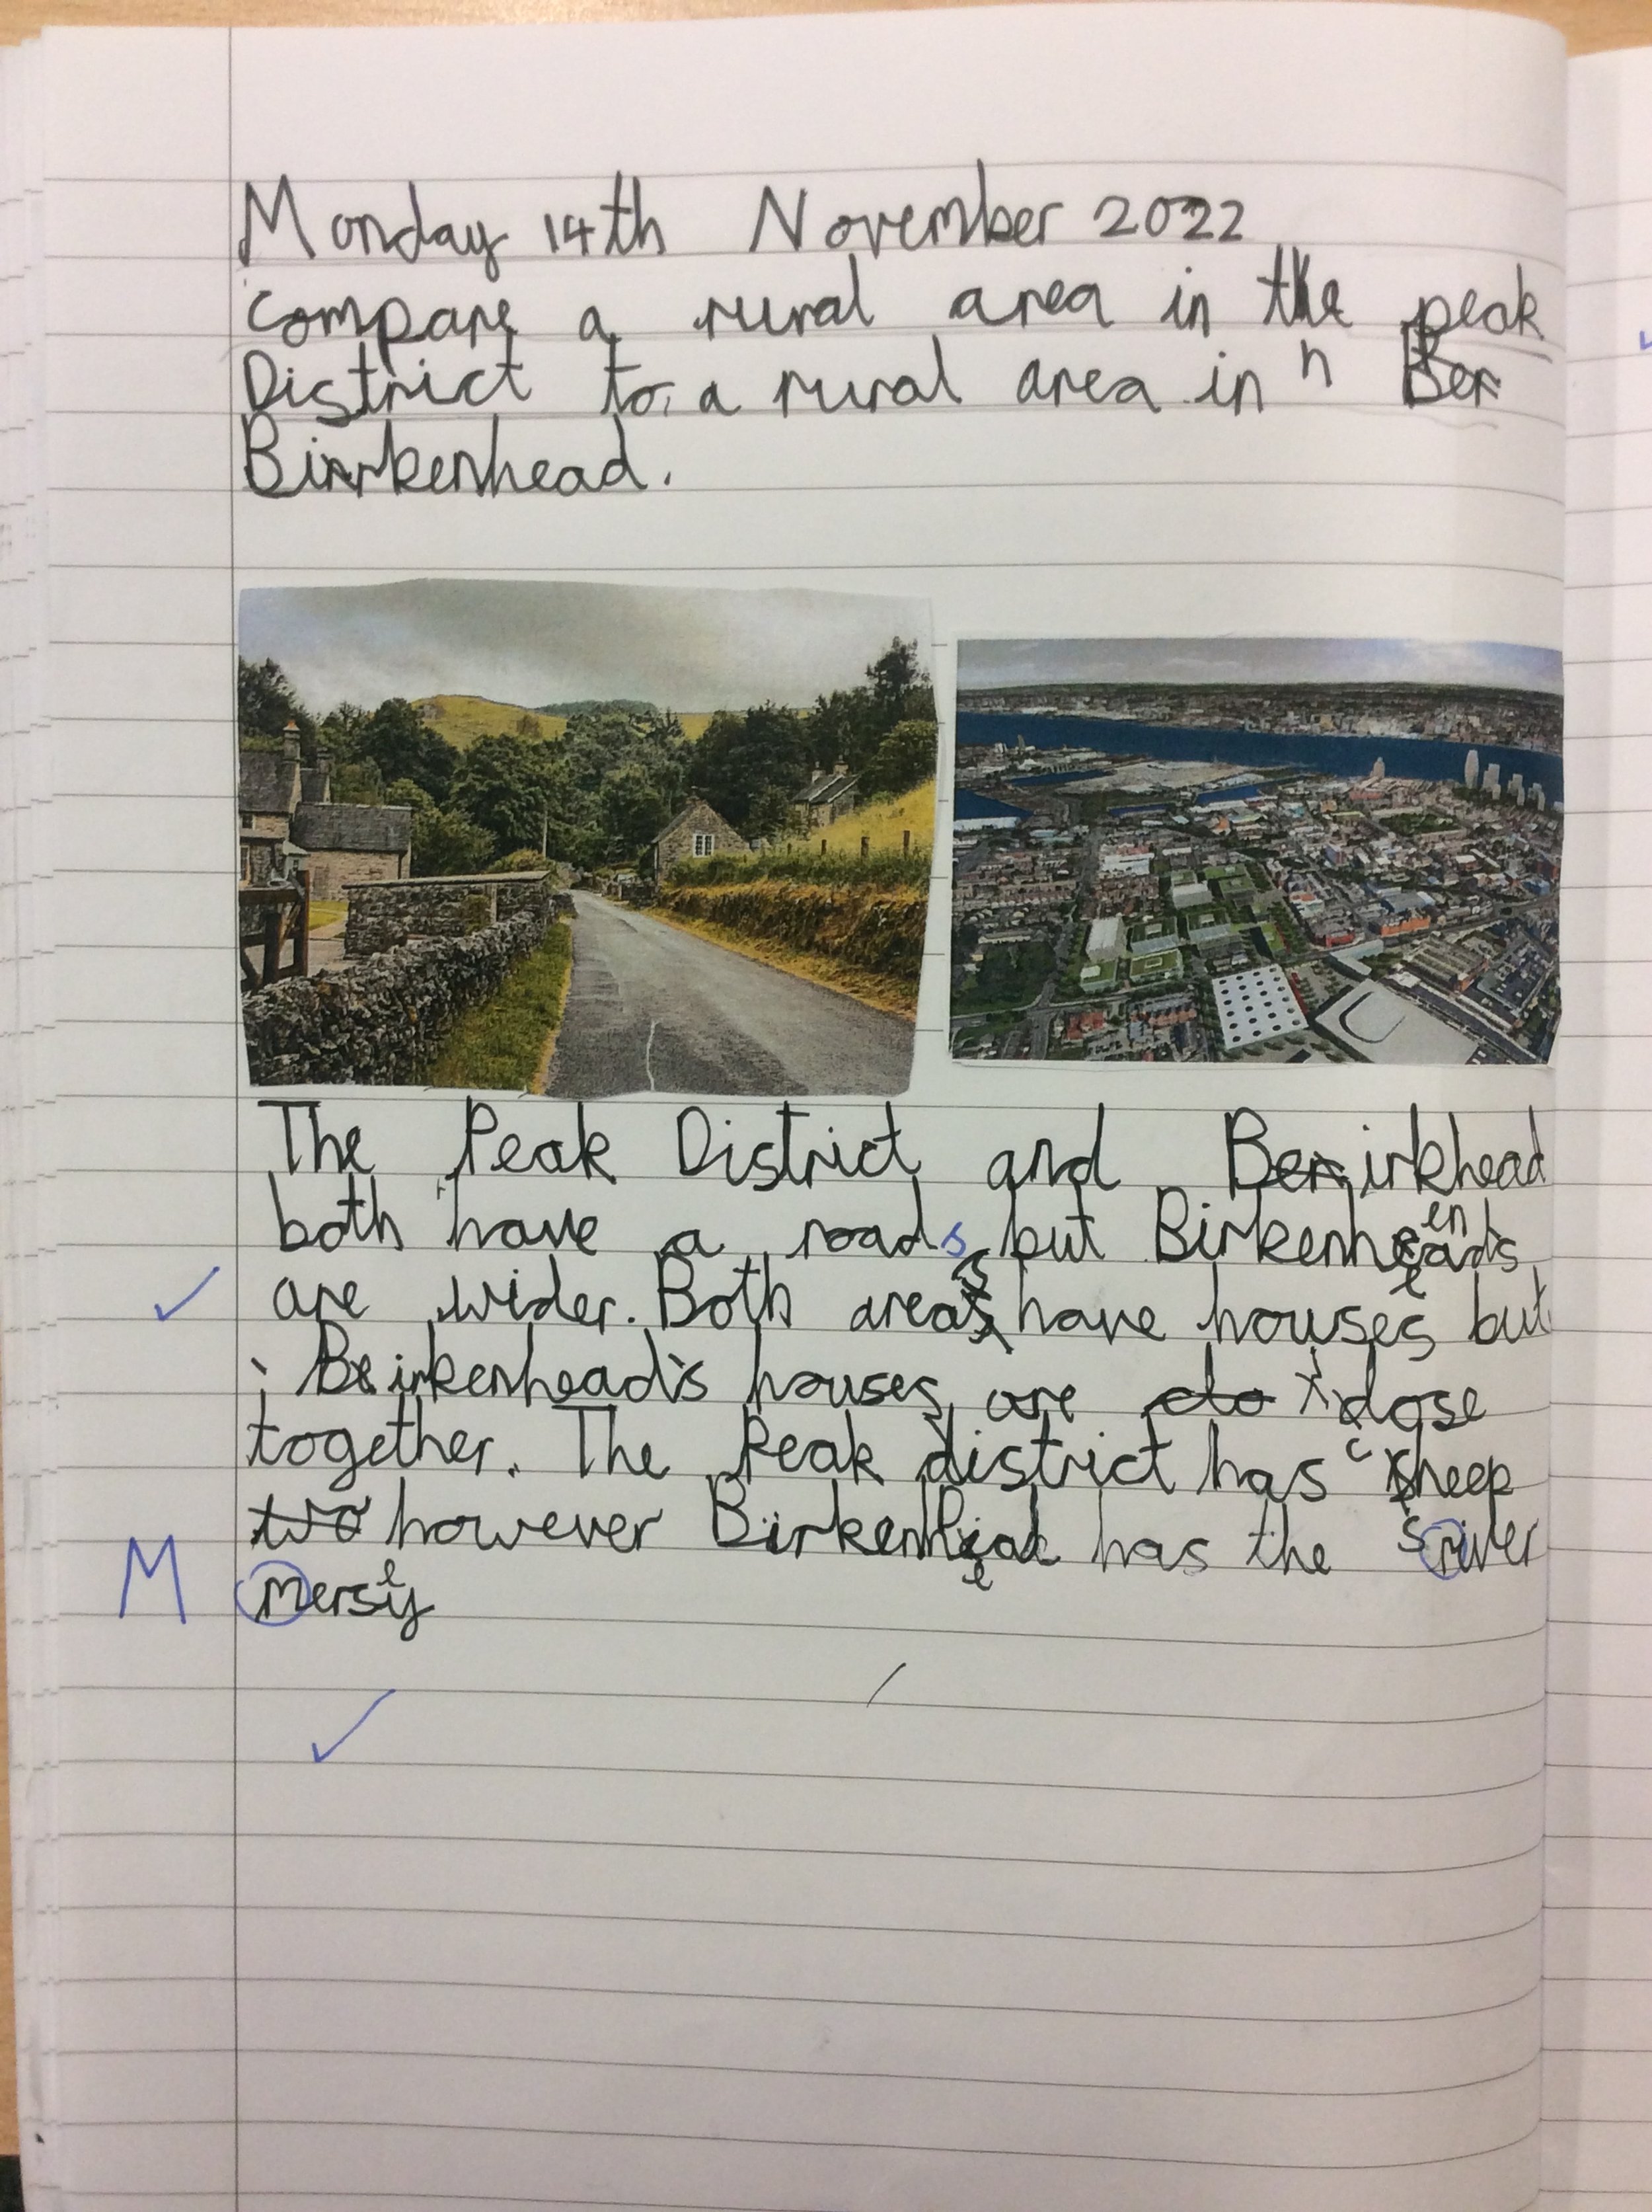 Monday 14th November 2022
compare a rural area in the peak
District to a rural area in n Ber
Birkenhead.
The Peak District and Ber irkhead
both have a roads but Birkenheads
are wider. Both areas have houses but
Birkenhead's houses are clo close
together. The Peak district has sheep
two however Birkenhead has the river
M mersey